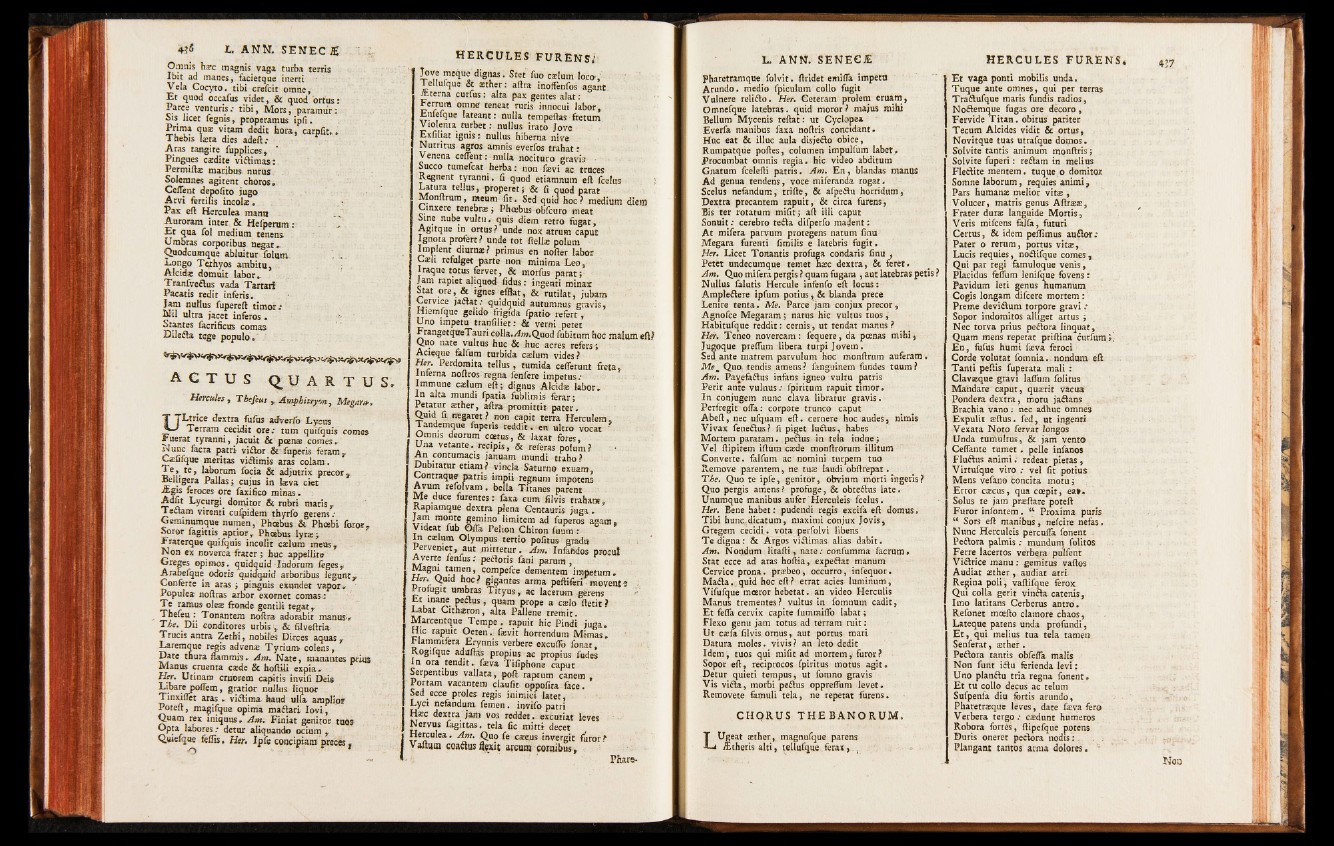 436 L. ANN. SENECÆ
Omnis hæc magnis vaga turba terris
Ibit ad manes, facietque inerti
Vela Cocyto. tibi creſcit omne,
Et quod occaſus videt, & quod ortus:
Parce venturis: tibi, Mors, paramur:
Sis licet ſegnis, properamus ipſi.
Prima quæ vitam dedit hora, carpſit.
Thebis læta dies adeſt:
Aras tangite ſupplices,
Pingues cædite victimas:
Permiſtæ maribus nurus
Solemnes agitent choros.
Ceſſent depoſito jugo
Arvi fertilis incolæ.
Pax eſt Herculea manu
Auroram inter & Heſperum:
Et qua ſol medium tenens
Umbras corporibus negat.
Quodcumque abluitur ſolum
Longo Tethyos ambitu,
Alcidæ domuit labor.
Tranſvectus vada Tartari
Pacatis redit inferis.
Jam nullus ſupereſt timor:
Nil ultra jacet inferos.
Stantes ſacrificus comas
Dilecta tege populo.
ACTUS QUARTUS.
Hercules, Theſeus, Amphitryon, Megara.
ULtrice dextra fuſus adverſo Lycus
Terram cecidit ore: tum quiſquis comes
Fuerat tyranni, jacuit & pœnæ comes.
Nunc ſacra patri victor & ſuperis feram,
Cæſiſque meritas victimis aras colam.
Te, te, laborum ſocia & adjutrix precor,
Belligera Pallas; cujus in læva ciet
Ægis feroces ore ſaxifico minas.
Adſit Lycurgi domitor & rubri maris,
Tectam virenti cuſpidem thyrſo gerens:
Geminumque numen, Phœbus & Phœbi ſoror,
Soror ſagittis aptior, Phœbus lyræ;
Fraterque quiſquis incolit cælum meus,
Non ex noverca frater; huc appellite
Greges opimos. quidquid Indorum ſeges,
Arabeſque odoris quidquid arboribus legunt,
Conferte in aras; pinguis exundet vapor.
Populea noſtras arbor exornet comas:
Te ramus oleæ fronde gentili tegat,
Theſeu: Tonantem noſtra adorabit manus.
The. Dii conditores urbis, & ſilveſtria
Trucis antra Zethi, nobiles Dirces aquas,
Laremque regis advenæ Tyrium colens,
Date thura flammis. Am. Nate, manantes prius
Manus cruenta cæde & hoſtili expia.
Her. Utinam cruorem capitis inviſi Deis
Libare poſſem, gratior nullus liquor
Tinxiſſet aras. victima haud ulla amplior
Poteſt, magiſque opima mactari Jovi,
Quam rex iniquus. Am. Finiat genitor tuos
Opta labores: detur aliquando otium,
Quieſque feſſis. Her. Ipſe concipiam preces,
HERCULES FURENS.
Jove meque dignas. Stet ſuo cælum loco,
Telluſque & æther: aſtra inoffenſos agant
Æterna curſus: alta pax gentes alat:
Ferrum omne teneat ruris innocui labor,
Enſeſque lateant: nulla tempeſtas fretum
Violenta turbet: nullus irato Jove
Exſiliat ignis: nullus hiberna nive
Nutritus agros amnis everſos trahat:
Venena ceſſent: nulla nocituro gravis
Succo tumeſcat herba: non ſævi ac truces
Regnent tyranni. ſi quod etiamnum eſt ſcelus
Latura tellus, properet; & ſi quod parat
Monſtrum, meum ſit. Sed quid hoc? medium diem
Cinxere tenebræ; Phœbus obſcuro meat
Sine nube vultu. quis diem retro fugat,
Agitque in ortus? unde nox atrum caput
Ignota profert? unde tot ſtellæ polum
Implent diurnæ? primus en noſter labor
Cæli refulget parte non minima Leo,
Iraque totus fervet, & morſus parat;
Jam rapiet aliquod ſidus: ingenti minax
Stat ore, & ignes efflat, & rutilat, jubam
Cervice jactat: quidquid autumnus gravis,
Hiemſque gelido frigida ſpatio refert,
Uno impetu tranſiliet: & verni petet
FrangetqueTauri colla. Am. Quod ſubitum hoc malum eſt?
Quo nate vultus huc & huc acres refers;
Acieque falſum turbida cælum vides?
Her. Perdomita tellus, tumida ceſſerunt freta,
Inferna noſtros regna ſenſere impetus:
Immune cælum eſt; dignus Alcidæ labor.
In alta mundi ſpatia ſublimis ferar;
Petatur æther, aſtra promittit pater.
Quid ſi negaret? non capit terra Herculem,
Tandemque ſuperis reddit. en ultro vocat
Omnis deorum cœtus, & laxat fores,
Una vetante. recipis, & reſeras polum?
An contumacis januam mundi traho?
Dubitatur etiam? vincla Saturno exuam,
Contraque patris impii regnum impotens
Avum reſolvam. bella Titanes parent
Me duce furentes: ſaxa cum ſilvis traham,
Rapiamque dextra plena Centauris juga.
Jam monte gemino limitem ad ſuperos agam,
Videat ſub Oſſa Pelion Chiron ſuum:
In cælum Olympus tertio poſitus gradu
Perveniet, aut mittetur. Am. Infandos procul
Averte ſenſus: pectoris ſani parum,
Magni tamen, compeſce dementem impetum.
Her. Quid hoc? gigantes arma peſtiferi movent?
Profugit umbras Tityus, ac lacerum gerens
Et inane pectus, quam prope a cælo ſtetit?
Labat Cithæron, alta Pallene tremit.
Marcentque Tempe. rapuit hic Pindi juga.
Hic rapuit Oeten. ſævit horrendum Mimas.
Flammifera Erynnis verbere excuſſo ſonat,
Rogiſque aduſtas propius ac propius ſudes
In ora tendit. ſæva Tiſiphone caput
Serpentibus vallata, poſt raptum canem,
Portam vacantem clauſit oppoſita face.
Sed ecce proles regis inimici latet,
Lyci nefandum ſemen. inviſo patri
Hæc dextra jam vos reddet. excutiat leves
Nervus ſagittas. tela ſic mitti decet
Herculea. Am. Quo ſe cæcus invergit furor?
Vaſtum coactus flexit arcum cornibus,
Phare-
L. ANN. SENECÆ
Pharetramque ſolvit. ſtridet emiſſa impetu
Arundo. medio ſpiculum collo fugit
Vulnere relicto. Her. Ceteram prolem eruam,
Omneſque latebras. quid moror? majus mihi
Bellum Mycenis reſtat: ut Cyclopea
Everſa manibus ſaxa noſtris concidant.
Huc eat & illuc aula disjecto obice,
Rumpatque poſtes, columen impulſum labet.
Procumbat omnis regia. hic video abditum
Gnatum ſceleſti patris. Am. En, blandas manus
Ad genua tendens, voce miſeranda rogat.
Scelus nefandum, triſte, & aſpectu horridum,
Dextra precantem rapuit, & circa furens,
Bis ter rotatum miſit; aſt illi caput
Sonuit: cerebro tecta diſperſo madent:
At miſera parvum proregens natum ſinu
Megara furenti ſimilis e latebris fugit.
Her. Licet Tonantis profuga condaris ſinu,
Petet undecumque temet hæc dextra, & feret.
Am. Quo miſera pergis? quam fugam, aut latebras petis?
Nullus ſalutis Hercule infenſo eſt locus:
Amplectere ipſum potius, & blanda prece
Lenire tenta. Me. Parce jam conjux precor,
Agnoſce Megaram; natus hic vultus tuos,
Habituſque reddit: cernis, ut tendat manus?
Her. Teneo novercam: ſequere, da pœnas mihi,
Jugoque preſſum libera turpi Jovem.
Sed ante matrem parvulum hoc monſtrum auferam.
Me. Quo tendis amens? ſanguinem fundes tuum?
Am. Pavefactus infans igneo vultu patris
Perit ante vulnus: ſpiritum rapuit timor.
In conjugem nunc clava libratur gravis.
Perfregit oſſa: corpore trunco caput
Abeſt, nec uſquam eſt. cernere hoc audes, nimis
Vivax ſenectus? ſi piget luctus, habes
Mortem paratam. pectus in tela indue;
Vel ſtipirem iſtum cæde monſtrorum illitum
Converte. falſum ac nomini turpem tuo
Remove parentem, ne tuæ laudi obſtrepat.
The. Quo te ipſe, genitor, obvium morti ingeris?
Quo pergis amens? profuge, & obtectus late.
Unumque manibus aufer Herculeis ſcelus.
Her. Bene habet: pudendi regis exciſa eſt domus.
Tibi hunc dicatum, maximi conjux Jovis,
Gregem cecidi. vota perſolvi libens
Te digna: & Argos victimas alias dabit.
Am. Nondum litaſti, nate: conſumma ſacrum.
Stat ecce ad aras hoſtia, expectat manum
Cervice prona. præbeo, occurro, inſequor.
Macta. quid hoc eſt? errat acies luminum,
Viſuſque mœror hebetat. an video Herculis
Manus trementes? vultus in ſomnum cadit,
Et feſſa cervix capite ſummiſſo labat;
Flexo genu jam totus ad terram ruit:
Ut cæſa ſilvis ornus, aut portus mari
Datura moles. vivis? an leto dedit
Idem, tuos qui miſit ad mortem, furor?
Sopor eſt, reciprocos ſpiritus motus agit.
Detur quieti tempus, ut ſomno gravis
Vis victa, morbi pectus oppreſſum levet.
Removete famuli tela, ne repetat furens.
CHORUS THEBANORUM.
LUgeat æther, magnuſque parens
Ætheris alti, telluſque ferax,
HERCULES FURENS. 437
Et vaga ponti mobilis unda.
Tuque ante omnes, qui per terras
Tractuſque maris fundis radios,
Noctemque fugas ore decoro,
Fervide Titan. obitus pariter
Tecum Alcides vidit & ortus,
Novitque tuas utraſque domos.
Solvite tantis animum monſtris;
Solvite ſuperi: rectam in melius
Flectite mentem. tuque o domitor
Somne laborum, requies animi,
Pars humanæ melior vitæ,
Volucer, matris genus Aſtrææ,
Frater duræ languide Mortis,
Veris miſcens falſa, futuri
Certus, & idem peſſimus auctor:
Pater o rerum, portus vitæ,
Lucis requies, noctiſque comes,
Qui par regi famuloque venis,
Placidus feſſum leniſque fovens:
Pavidum leti genus humanum
Cogis longam diſcere mortem:
Preme devictum torpore gravi:
Sopor indomitos alliget artus;
Nec torva prius pectora linquat,
Quam mens repetat priſtina curſum.
En, fuſus humi ſæva feroci
Corde volutat ſomnia. nondum eſt
Tanti peſtis ſuperata mali:
Clavæque gravi laſſum ſolitus
Mandare caput, quærit vacua
Pondera dextra, motu jactans
Brachia vano. nec adhuc omnes
Expulit æſtus. ſed, ut ingenti
Vexata Noto ſervat longos
Unda tumultus, & jam vento
Ceſſante tumet. pelle inſanos
Fluctus animi: redeat pietas,
Virtuſque viro: vel ſit potius
Mens veſano concita motu;
Error cæcus, qua cœpit, eat.
Solus te jam præſtare poteſt
Furor inſontem. “ Proxima puris
“ Sors eſt manibus, neſcire nefas.
Nunc Herculeis percuſſa ſonent
Pectora palmis: mundum ſolitos
Ferre lacertos verbera pulſent
Victrice manu: gemitus vaſtos
Audiat æther, audiat atri
Regina poli, vaſtiſque ferox
Qui colla gerit vincta catenis,
Imo latitans Cerberus antro.
Reſonet mœſto clamore chaos,
Lateque patens unda profundi,
Et, qui melius tua tela tamen
Senſerat, æther.
Pectora tantis obſeſſa malis
Non ſunt ictu ferienda levi:
Uno planctu tria regna ſonent.
Et tu collo decus ac telum
Suſpenſa diu fortis arundo,
Pharetræque leves, date ſæva fero
Verbera tergo: cædunt humeros
Robora fortes, ſtipeſque potens
Duris oneret pectora nodis:
Plangant tantos arma dolores.
Non